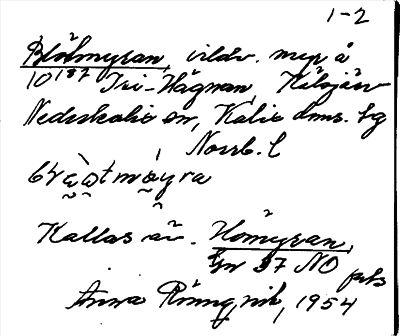 1-2
Blötmyran, vildv. myr å
10¹⁸⁷ Tri-Hägnan, Kälsjärv
Nederkalix sn, Kalix dms. tg
Norrb. l
Kallas äv. Hömyran,
37 NO
Anna Rönnqvik, 1954